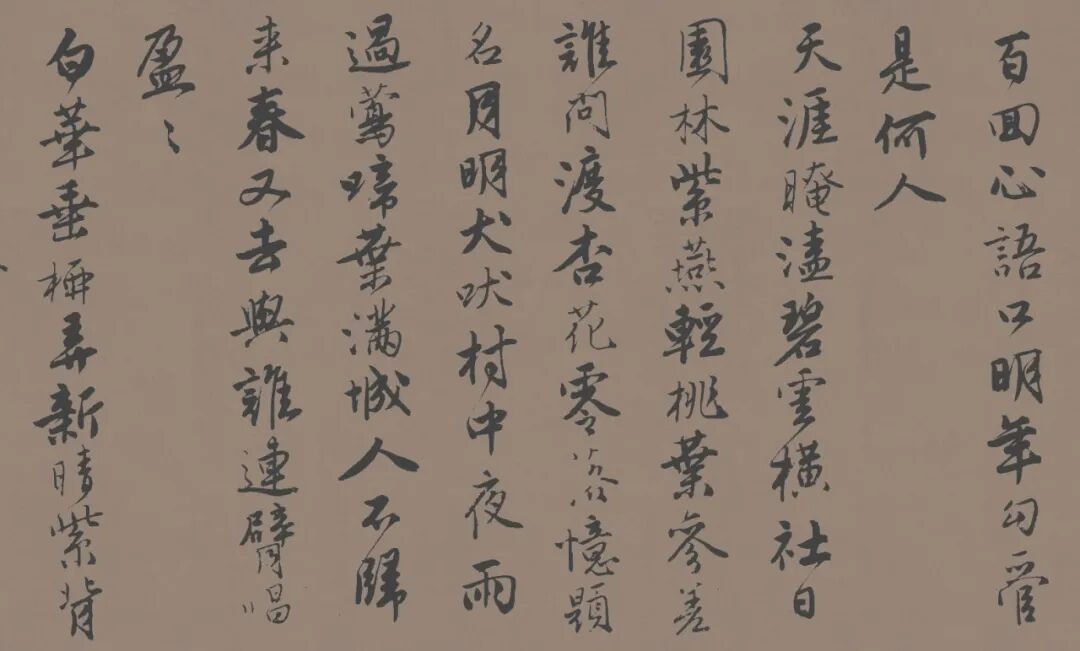 百回心語口明年勾管
是何人
天涯晻溘碧雲橫社日
園林紫燕輕桃葉參差
誰問渡杏花零落憶題
名月明犬吠村中夜雨
過鶯啼葉滿城人不歸
来春又去與誰連臂唱
盈〻
白華垂弄新晴紫背